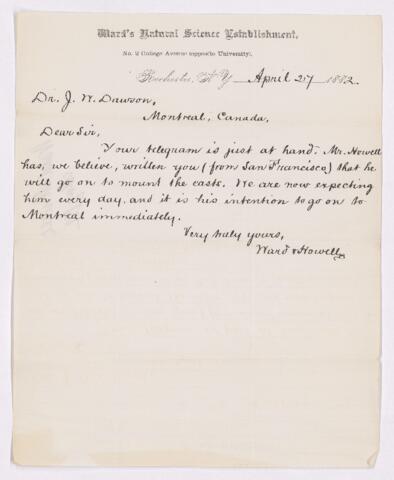 Ward's Natural Science Establishment,
No. 2 College Avenue (opposite University),
Rochester, N.Y. April 27 1882.
Dr. J. W. Dawson,
Montreal, Canada,
Dear Sir,
Your telegram is just at hand. Mr. Howell
has, we believe, written you (from San Francisco) that he
will go on to mount the casts. We are now expecting
him every day, and it is his intention to go on to
Montreal immediately.
Very truly yours,
Ward & Howell